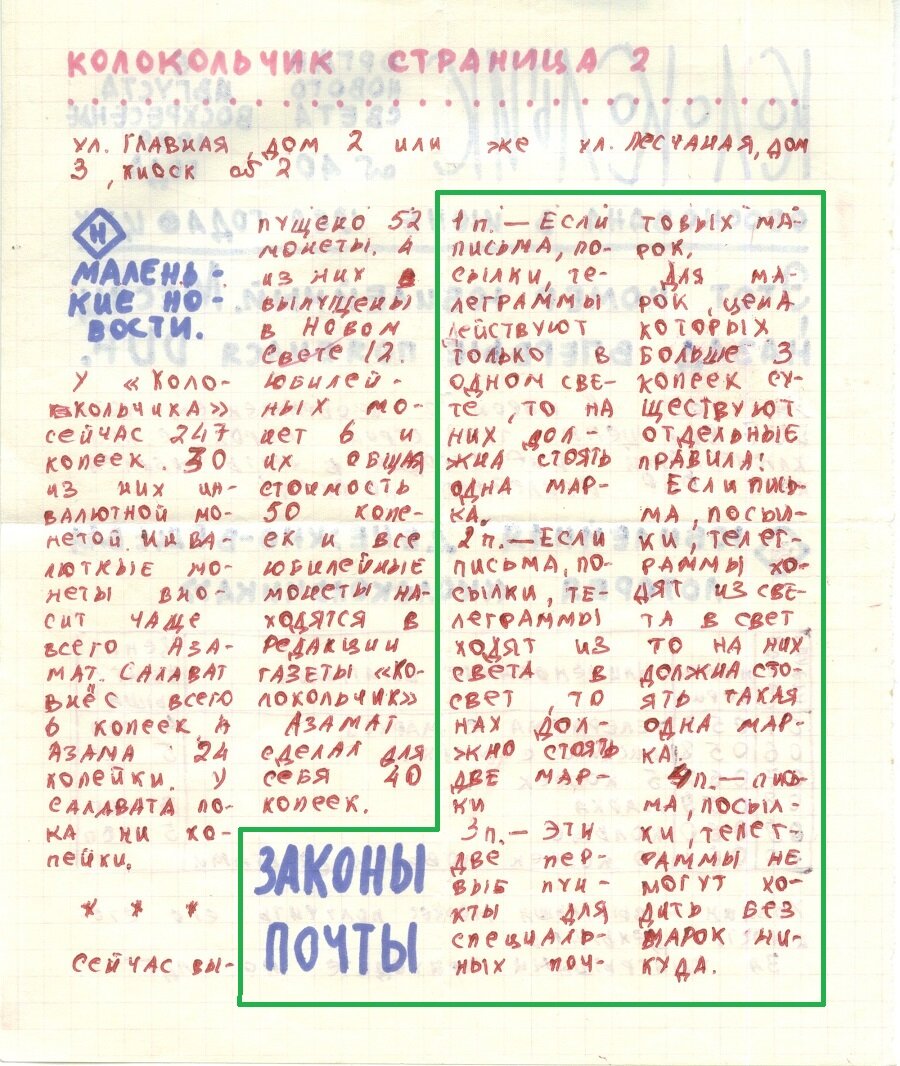 КОЛОКОЛЬЧИК СТРАНИЦА 2
УЛ. ГЛАВНАЯ, ДОМ 2 ИЛИ ЖЕ УЛ. ПЕСЧАНАЯ, ДОМ
3, КИОСК об 2
Н
МАЛЕНЬ-
КИЕ НО-
ВОСТИ.
У «КОЛО-
КОЛЬЧИКА»
СЕЙЧАС 247
КОПЕЕК. 30
ИЗ НИХ ИН-
ВАЛЮТНОЙ МО-
НЕТОЙ. ИНВА-
ЛЮТНЫЕ МО-
НЕТЫ ВНО-
СИТ ЧАЩЕ
ВСЕГО АЗА-
МАТ. САЛАВАТ
ВНЁС ВСЕГО
6 КОПЕЕК, А
АЗАМА 24
КОПЕЙКИ. У
САЛАВАТА ПО-
КА НИ КО-
ПЕЙКИ.
* * *
СЕЙЧАС ВЫ-
ПУЩЕНО 52
МОНЕТЫ. А
ИЗ НИХ В
ВЫПУЩЕНЫ
В НОВОМ
СВЕТЕ 12.
ЮБИЛЕЙ-
НЫХ МО-
НЕТ 6 И
ИХ ОБЩАЯ
СТОИМОСТЬ
50 КОПЕ-
ЕК И ВСЕ
ЮБИЛЕЙНЫЕ
МОНЕТЫ НА-
ХОДЯТСЯ В
РЕДАКЦИИ
ГАЗЕТЫ «КО-
ЛОКОЛЬЧИК»
АЗАМАТ
СДЕЛАЛ ДЛЯ
СЕБЯ 40
КОПЕЕК.
ЗАКОНЫ
ПОЧТЫ
1 п. — ЕСЛИ
ПИСЬМА, ПО-
СЫЛКИ, ТЕ-
ЛЕГРАММЫ
ДЕЙСТВУЮТ
ТОЛЬКО В
ОДНОМ СВЕ-
ТЕ, ТО НА
НИХ ДОЛ-
ЖНА СТОЯТЬ
ОДНА МАР-
КА.
2 п. — ЕСЛИ
ПИСЬМА, ПО-
СЫЛКИ, ТЕ-
ЛЕГРАММЫ
ХОДЯТ ИЗ
СВЕТА В
СВЕТ, ТО
НАХ ДОЛ-
ЖНО СТОЯТЬ
ДВЕ МАР-
КИ
3 п. — ЭТИ
ДВЕ ПЕР-
ВЫБ ПУН-
КТЫ ДЛЯ
СПЕЦИАЛЬ-
НЫХ ПОЧ-
ТОВЫХ МА-
РОК.
ДЛЯ МА-
РОК, ЦЕНА
КОТОРЫХ
БОЛЬШЕ 3
КОПЕЕК СУ-
ЩЕСТВУЮТ
ОТДЕЛЬНЫЕ
ПРАВИЛА!
ЕСЛИ ПИСЬ-
МА, ПОСЫЛ-
КИ, ТЕЛЕГ-
РАММЫ ХО-
ДЯТ ИЗ СВЕ-
ТА В СВЕТ
ТО НА НИХ
ДОЛЖНА СТО-
ЯТЬ ТАКАЯ
ОДНА МАР-
КА.
4 п. — ПИСЬ-
МА, ПОСЫЛ-
КИ, ТЕЛЕГ-
РАММЫ НЕ
МОГУТ ХО-
ДИТЬ БЕЗ
МАРОК НИ-
КУДА.